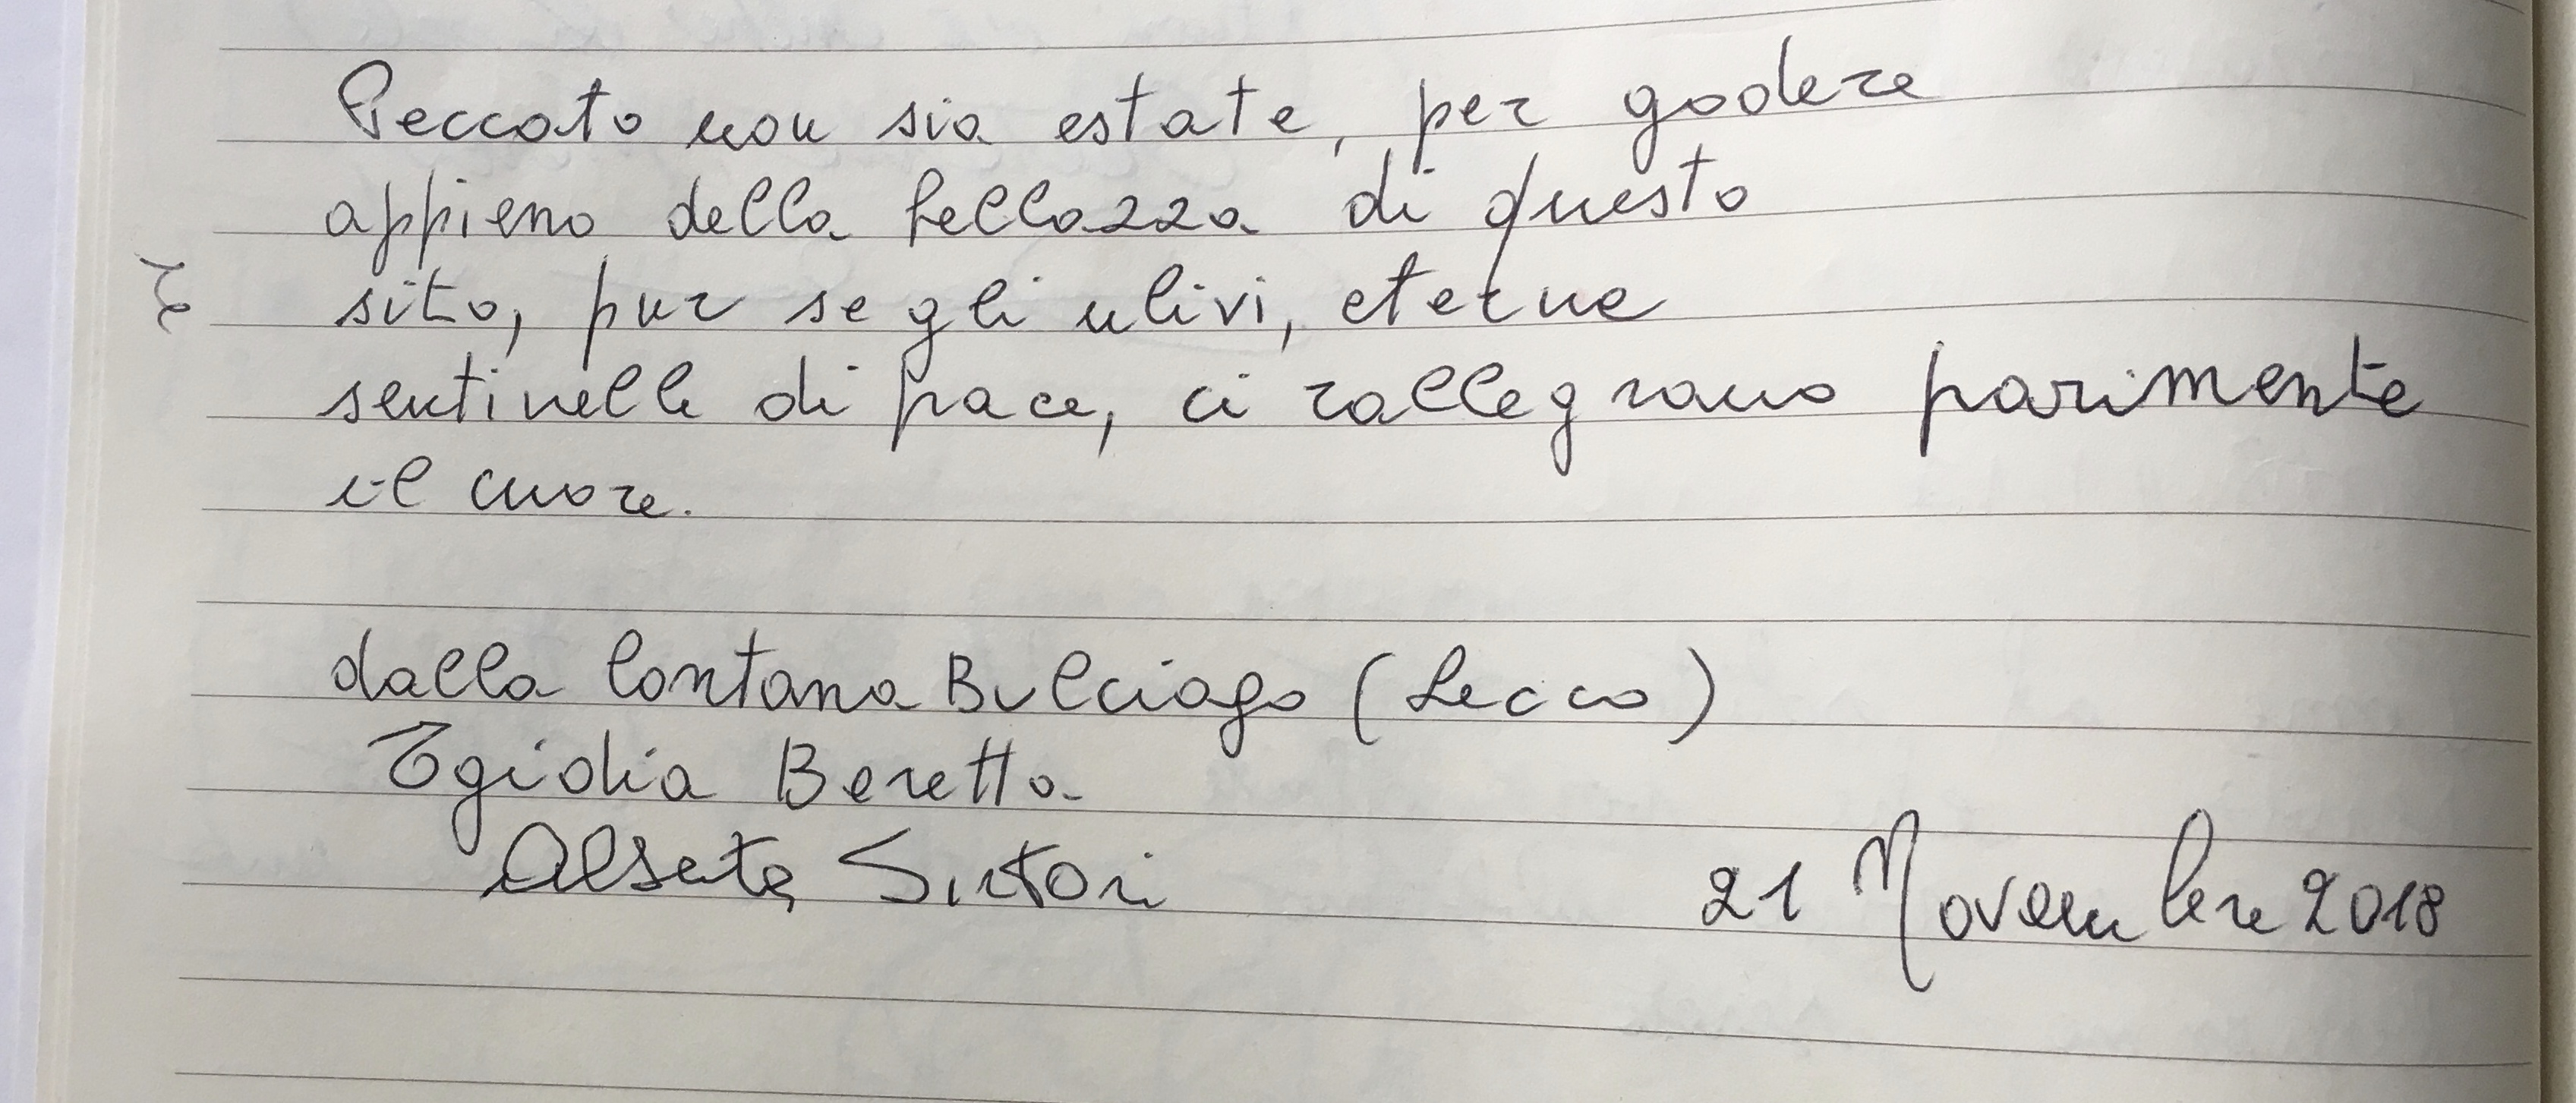 Peccato non sia estate, per godere
appieno della bellezza di questo
sito, pur se gli ulivi, eterne
sentinelle di pace, ci rallegrano parimente
il cuore.
dalla lontana Bulciago (Lecco)
Egidia Beretta
Sirtori
21 Novembre 2018